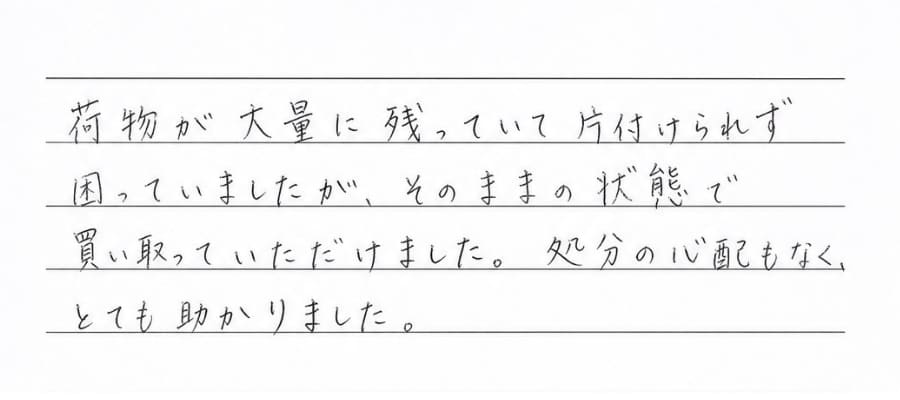 荷物が大量に残っていて片付けられず
困っていましたが、そのままの状態で
買い取っていただけました。処分の心配もなく、
とても助かりました。